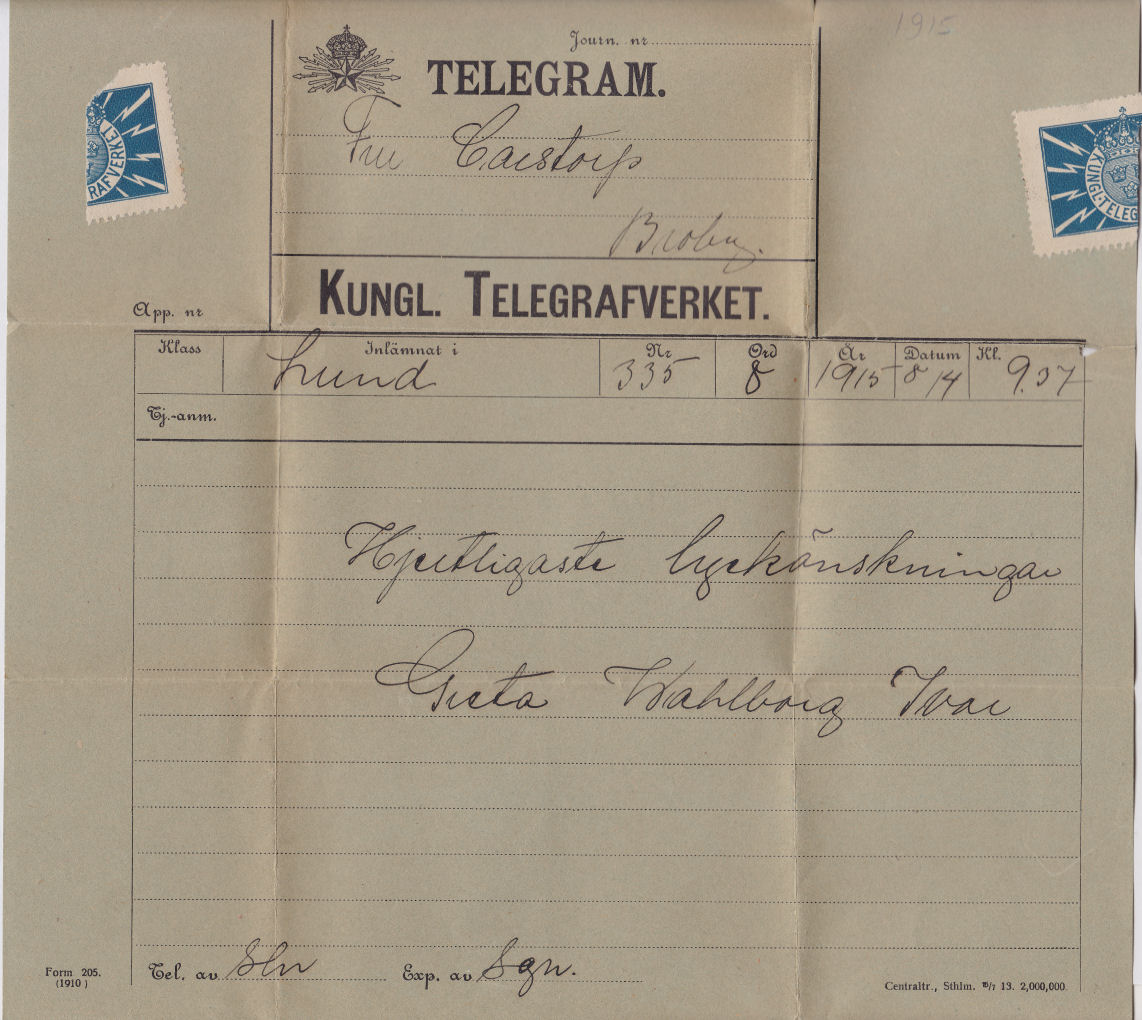 1915
Journ. nr
TELEGRAM.
Fru Carstorp
Broby.
KUNGL. TELEGRAFVERKET.
RAFVERKET
KUNGL. TELEG
App. nr
Klass Inlämnat i Nr Ord År Datum Kl.
Lund 335 8 1915 8/4 9.37
Tj.-anm.
Hjertligaste lyckönskningar
Greta Wahlborg Ivar
Tel. av Exp. av Sgn.
Form 205.
(1910)
Centraltr., Sthlm. 13. 2,000,000.